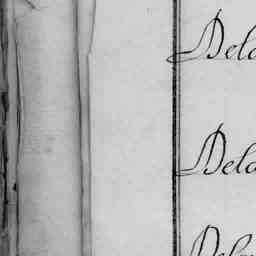 Dela
Dela
Dela